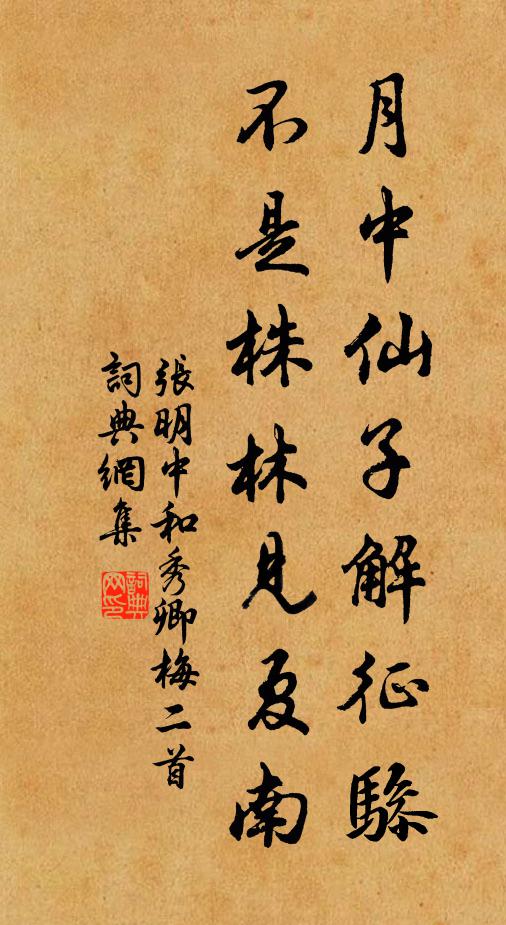 月中仙子解征驂
不是株林見夏南
張明中和秀卿梅二首
詞典網集
詞典网印